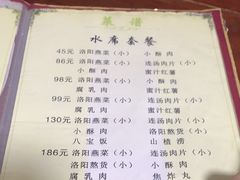 菜谱
水席套餐
45元 洛阳燕菜(小) 小酥肉
86元 洛阳燕菜(小) 连汤肉片(小)
小酥肉 蜜汁红薯
98元 洛阳燕菜(小) 小酥肉
腐乳肉 蜜汁红薯
99元 洛阳燕菜(小) 连汤肉片(小)
腐乳肉 蜜汁红薯
130元 洛阳燕菜(小) 连汤肉片(小)
小酥肉 洛阳熬货(小)
八宝饭 山楂涝
186元 洛阳燕菜(小) 连汤肉片(小)
洛阳熬货(小) 小酥肉
腐乳肉 焦炸丸